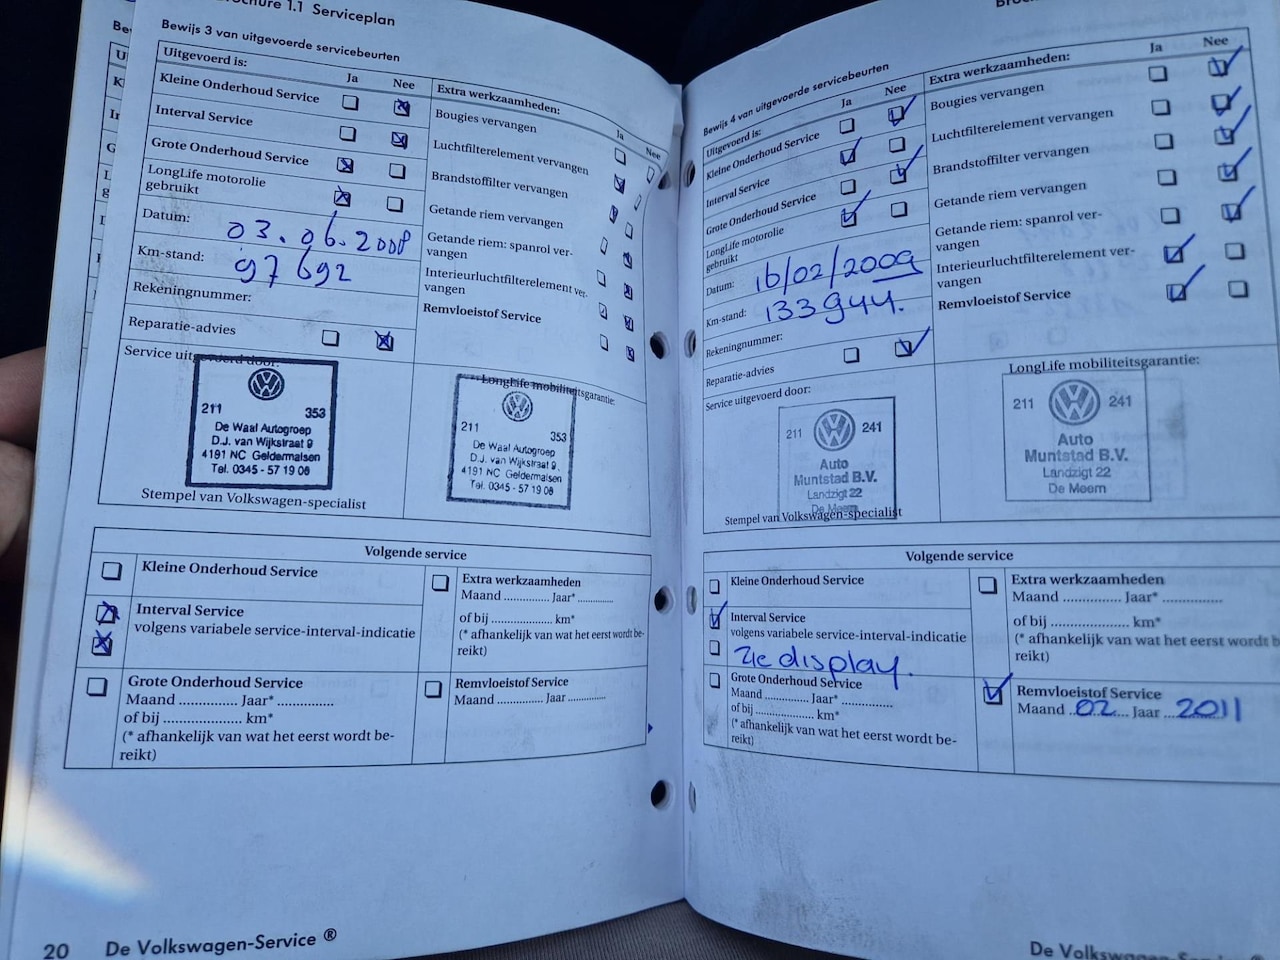 Brochure 1.1 Serviceplan
Bewijs 3 van uitgevoerde servicebeurten
Uitgevoerd is:
Ja Nee
Kleine Onderhoud Service
Interval Service
Grote Onderhoud Service
LongLife motorolie
gebruikt
Datum: 03.06.2008
Km-stand: 97692
Rekeningnummer:
Reparatie-advies
Extra werkzaamheden:
Ja Nee
Bougies vervangen
Luchtfilterelement vervangen
Brandstoffilter vervangen
Getande riem vervangen
Getande riem: spanrol ver-
vangen
Interieurluchtfilterelement ver-
vangen
Remvloeistof Service
Service uitgevoerd door:
211 353
De Waal Autogroep
D.J. van Wijkstraat 9
4191 NC Geldermalsen
Tel. 0345 - 57 19 08
Stempel van Volkswagen-specialist
LongLife mobiliteitsgarantie:
211 353
De Waal Autogroep
D.J. van Wijkstraat 9
4191 NC Geldermalsen
Tel. 0345 - 57 19 08
Volgende service
Kleine Onderhoud Service
Interval Service
volgens variabele service-interval-indicatie
Grote Onderhoud Service
Maand ............... Jaar* ...............
of bij .................... km*
(* afhankelijk van wat het eerst wordt be-
reikt)
Extra werkzaamheden
Maand ............ Jaar* ............
of bij .................... km*
(* afhankelijk van wat het eerst wordt be-
reikt)
Remvloeistof Service
Maand ............ Jaar ............
20 De Volkswagen-Service ®
Bewijs 4 van uitgevoerde servicebeurten
Uitgevoerd is:
Ja Nee
Kleine Onderhoud Service
Interval Service
Grote Onderhoud Service
LongLife motorolie
gebruikt
Datum: 16/02/2009
Km-stand: 133944.
Rekeningnummer:
Reparatie-advies
Extra werkzaamheden:
Ja Nee
Bougies vervangen
Luchtfilterelement vervangen
Brandstoffilter vervangen
Getande riem vervangen
Getande riem: spanrol ver-
vangen
Interieurluchtfilterelement ver-
vangen
Remvloeistof Service
Service uitgevoerd door:
211 241
Auto
Muntstad B.V.
Landzigt 22
De Meern
Stempel van Volkswagen-specialist
LongLife mobiliteitsgarantie:
211 241
Auto
Muntstad B.V.
Landzigt 22
De Meern
Volgende service
Kleine Onderhoud Service
Interval Service
volgens variabele service-interval-indicatie
Zie display.
Grote Onderhoud Service
Maand ............... Jaar* ...............
of bij .................... km*
(* afhankelijk van wat het eerst wordt be-
reikt)
Extra werkzaamheden
Maand ............... Jaar* ...............
of bij .................... km*
(* afhankelijk van wat het eerst wordt be-
reikt)
Remvloeistof Service
Maand ..02... Jaar ..2011
De Volkswagen-Service ®